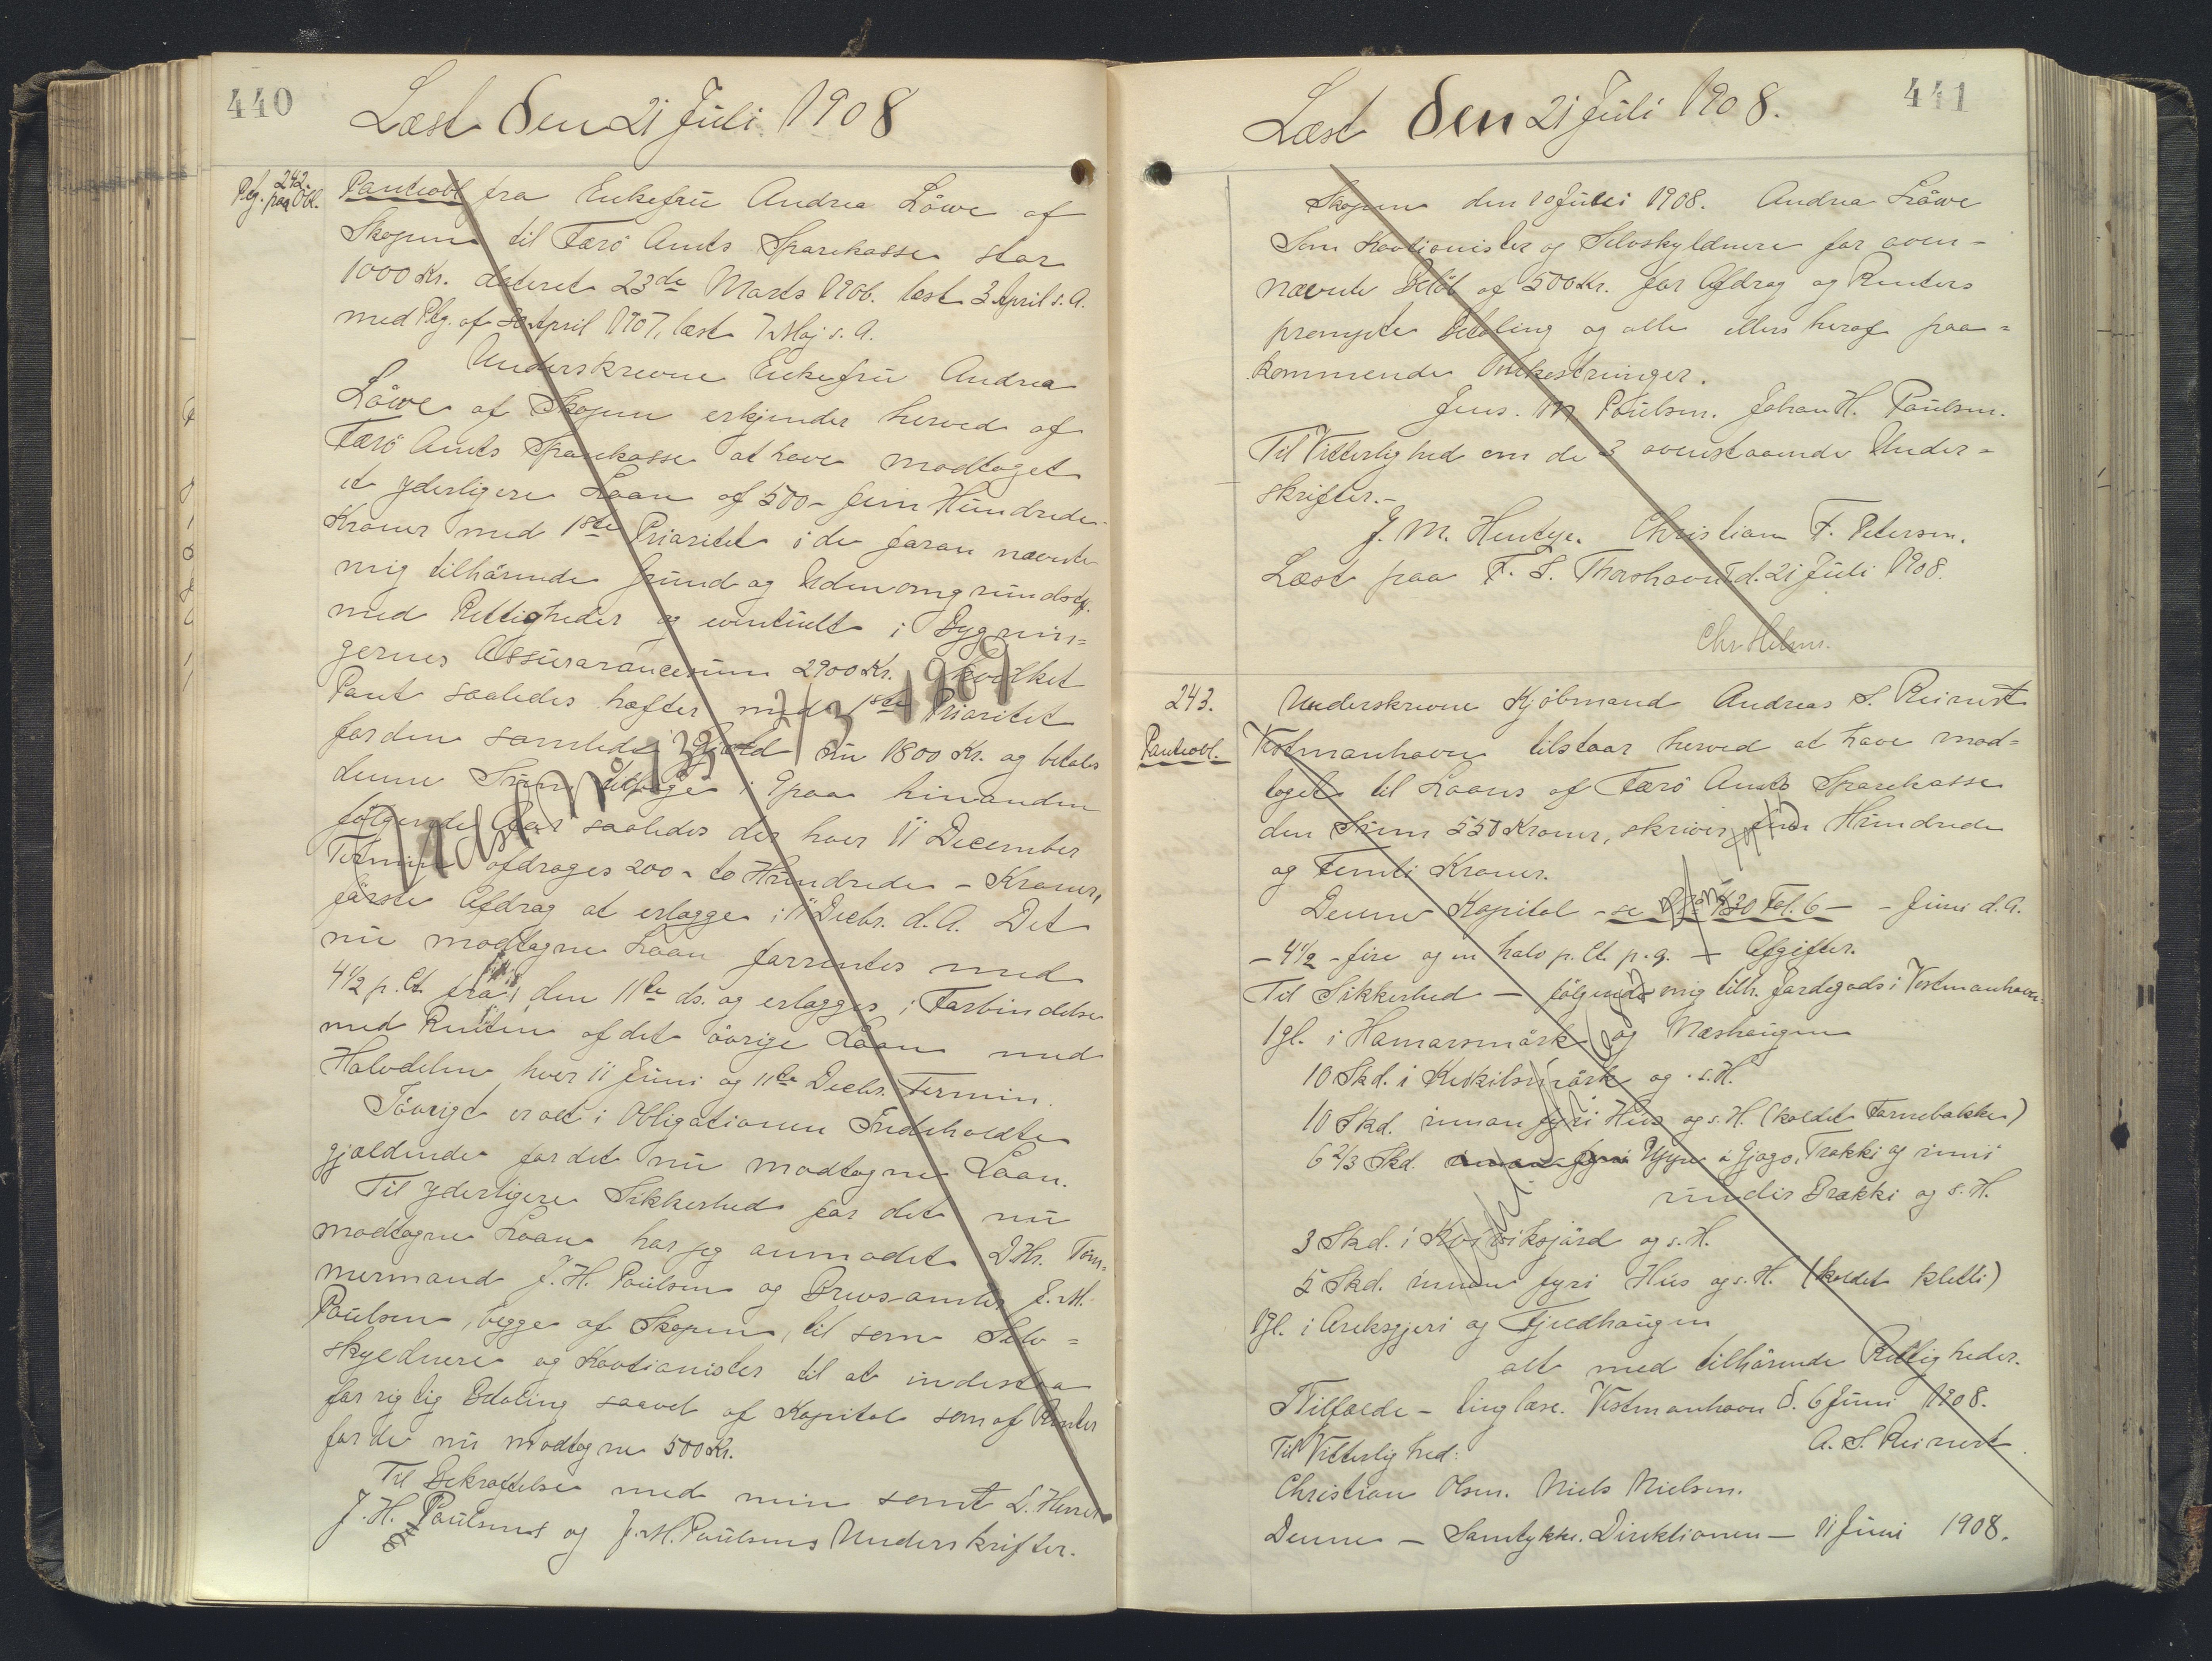 440
Læst den 21 Juli 1908
242.
Ptg. paa Obl.
Panteobl fra Enkefrú Andrea Löwe af
Skopun til Færö Amts Sparekasse stor
1000 Kr. dateret 23de Marts 1906. læst 3 April s. A.
med Ptg. af 30 April 1907, læst 7 Maj s. A.
Underskrevne Enkefrú Andrea
Löwe af Skopun erkjender herved af
Færö Amts Sparekasse at have modtaget
et yderligere Laan af 500 - fem Hundrede -
Kroner med 1ste Prioritet i de foran nævnte
mig tilhörende Grund og Udenomgrundst.
med Rettigheder og eventuelt i Bygnin=
gernes Assurarancesum 2900 Kr. hvilket
Pant saaledes hæfter med 1ste Prioritet
for den samlede Gjæld nú 1800 Kr. og betales
denne Súm tilbage i 9 paa hinanden
fölgende Aar saaledes der hver 11 December
Termin afdrages 200 - to Hundrede - Kroner,
förste Afdrag at erlægge i 11 Decbr. d. A. Det
nú modtagne Laan forrentes med
4 1/2 p. Ct. fra den 11te ds. og erlægges i Forbindelse
med Renten af det övrige Laan med
Halvdelen hver 11 Juni og 11te Decbr. Termin.
Iövrigt er alt i Obligationen Indeholdte
gjældende for det nú modtagne Laan.
Til yderligere Sikkerhed for det nú
modtagne Laan har jeg anmodet D'Hr. Töm=
mermand J. H. Poulsen og Brevsamler J. M.
Poulsen, begge af Skopun, til som Selv=
skyldnere og Kautionister til at indestaa
for rigtig Betaling saavel af Kapital som af Renter
for de nú modtagne 500 Kr.
Til Bekræftelse med min samt D'Herrer
J. H. Poulsens og J. M. Poulsens Underskrifter.
Udsl. No 13 2/3 1909
441
Læst den 21 Juli 1908.
Skopun den 10 Juli 1908. Andrea Löwe
Som Kautionister og Selvskyldnere for oven-
nævnte Belöb af 500 Kr. for Afdrag og Renters
prompte Betaling og alle ellers heraf paa=
kommende Omkostninger.
Jens. M Poulsen. Johan H. Poulsen.
Til Vitterlighed om de 3 ovenstaaende Under=
skrifter.-
J. M. Hentze. Christian F. Petersen.
Læst paa F. T. Thorshavn d. 21 Juli 1908.
Chr Helms.
243.
Panteobl.
Underskrevne Kjöbmand Andreas S. Reinert
Vestmanhavn tilstaar herved at have mod=
taget til Laans af Færö Amts Sparekasse
den Súm 550 Kroner, skriver fem Hundrede
og Femti Kroner.
Denne Kapital - se No 130 Fol. 6 - - Juni d. A.
- 4 1/2 - fire og en halv p. Ct. p. a. - Afgifter.
Til Sikkerhed - fölgende mig tilh. Jordegods i Vestmanhavn:
1 gl. i Hamarsmörk og Næshaúgen
10 Skd. i Keskilsmörk og s. H.
10 Skd. innan fyri Hús og s. H. (kaldet Tornebakke)
6 2/3 Skd. innan fyri Uppi á Gjógv, Trøkki og inni
undir Brøkki og s. H.
3 Skd. i Kvivviksjörd og s. H.
5 Skd. innan fyri Hús og s. H. (kaldet kletti)
1 gl. i Areksgjeri og Fjeldhaúgen
alt med tilhörende Rettigheder.
I Tilfælde - tinglæse. Vestmanhavn d. 6 Juni 1908.
Til Vitterlighed: A. S. Reinert.
Christian Olsen. Niels Nielsen.
Denne - Samtykke. Direktionen - 11 Juni 1908.